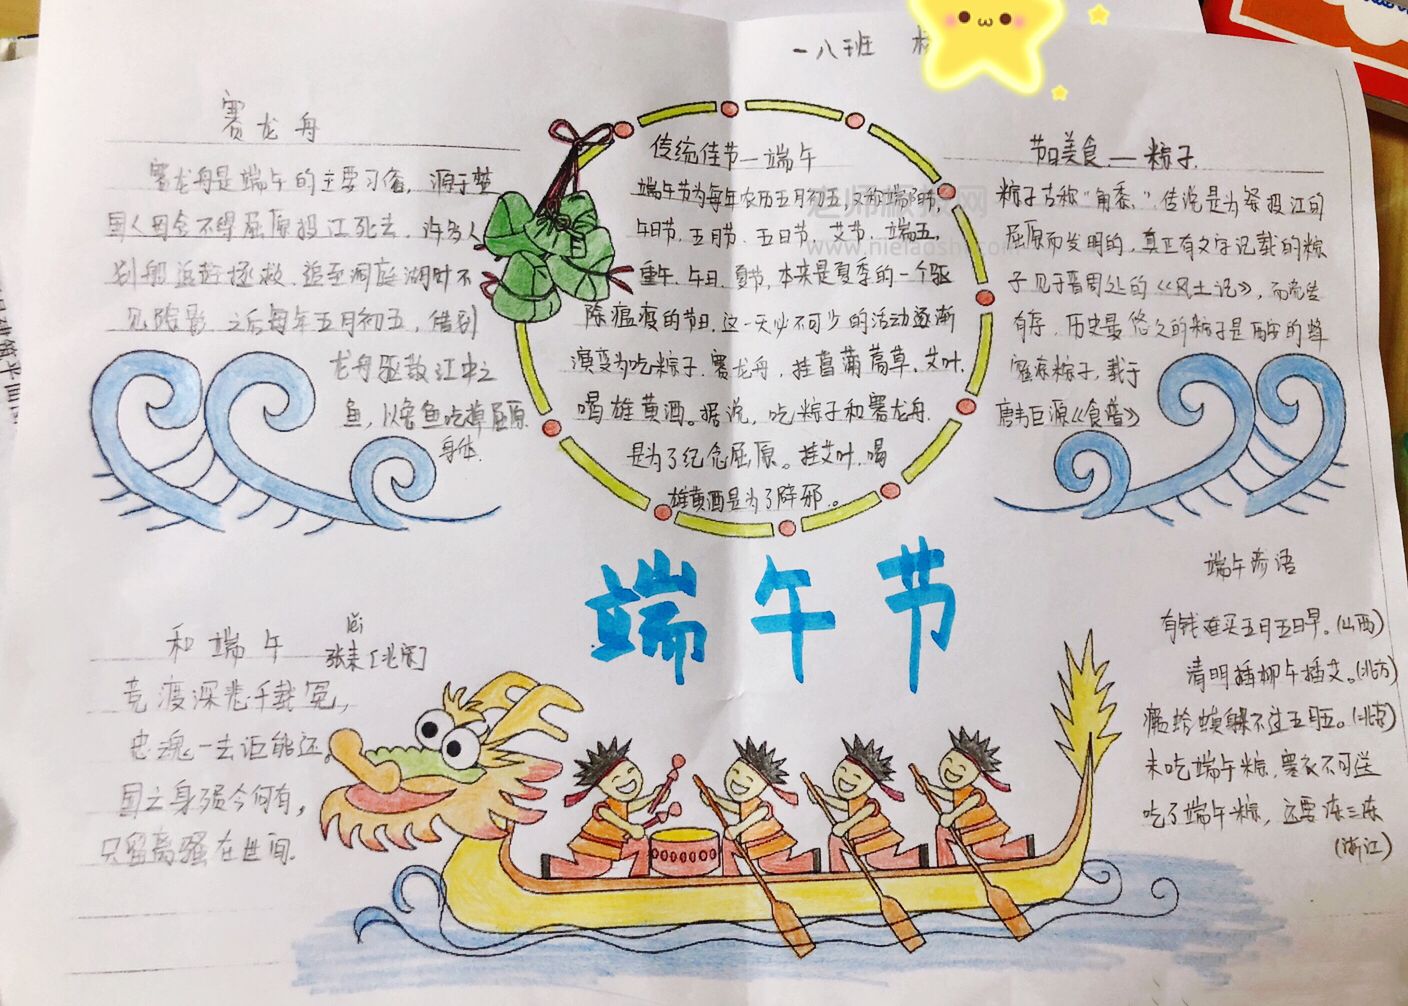 一八班
赛龙舟
赛龙舟是端午的主要习俗，源于楚
国人因舍不得屈原投江死去，许多人
划船追赶拯救。追至洞庭湖时不
见踪影，之后每年五月初五，借划
龙舟驱散江中之
鱼，以免鱼吃掉屈原
身体.
传统佳节—端午
端午节为每年农历五月初五又称端阳节,
午日节、五月节、五日节、艾节、端五,
重午、午日、夏节,本来是夏季的一个驱
除瘟疫的节日,这一天必不可少的活动逐渐
演变为吃粽子、赛龙舟,挂菖蒲蒿草、艾叶,
喝雄黄酒。据说，吃粽子和赛龙舟.
是为了纪念屈原。挂艾叶、喝
雄黄酒是为了辟邪.。
老师板报网
节日美食—粽子.
粽子古称"角黍",传说是为祭投江的
屈原而发明的,真正有文字记载的粽
子见于晋周处的《风土记》,而
有存,历史最悠久的粽子是西安的蜂
粽子,载于
唐韦巨源《食谱》
端午节
和端午
张耒[北宋]
竞渡深悲千载冤,
忠魂一去讵能还。
国亡身殒今何有,
只留离骚在世间.
端午谚语
有钱难买五月五日旱。(山西)
清明插柳午插艾。(北方)
癞蛤蟆躲不过五月五。(北京)
未吃端午粽，寒衣不可送
吃了端午粽，还要冻三冻
(浙江)